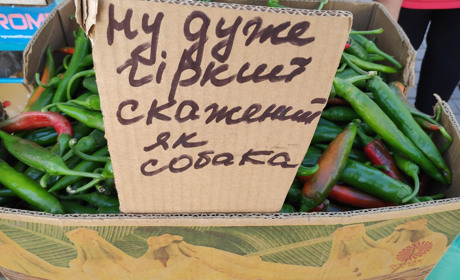 ROM
Ну дуже
гіркий
скажений
як
собака